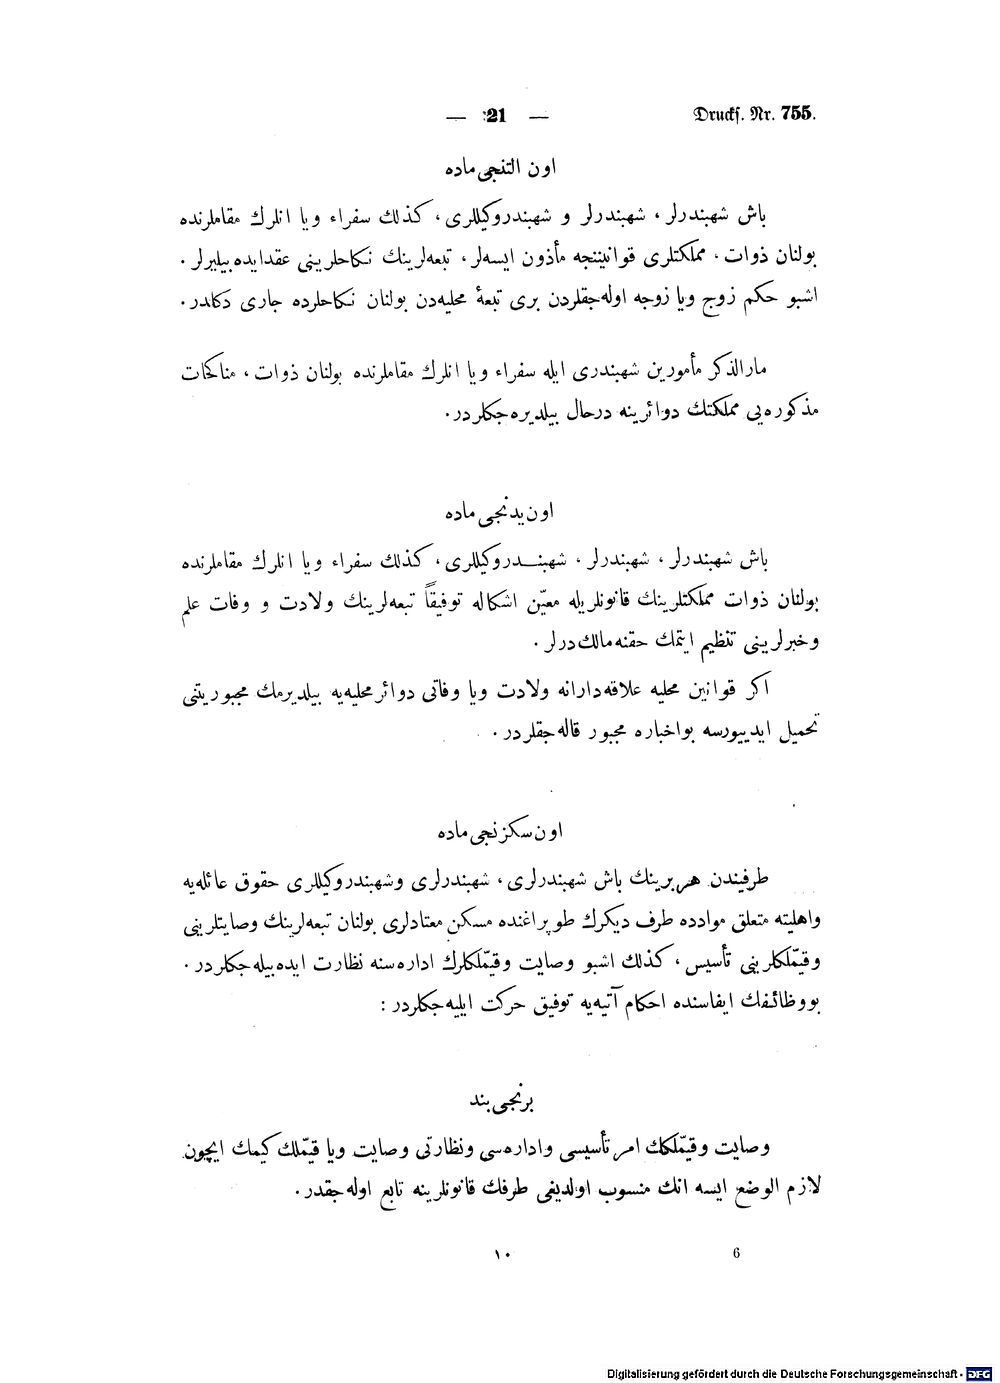 — 21 —
Drucks. Nr. 755.
اون التنجی ماده
باش شهبندرلر، شهبندرلر و شهبندروکیللری، کذلك سفراء ویا انلرك مقاملرنده
بولنان ذوات، مملکتلری قوانیننجه مأذون ایسه‌لر، تبعه‌لرینك نکاحلرینی عقدایده‌بیلیرلر.
اشبو حکم زوج ویا زوجه اوله‌جقلردن بری تبعۀ محلیه‌دن بولنان نکاحلرده جاری دکلدر.
مارالذکر مأمورین شهبندری ایله سفراء ویا انلرك مقاملرنده بولنان ذوات، مناکحات
مذکوره‌یی مملکتك دوائرینه درحال بیلدیره‌جکلردر.
اون یدنجی ماده
باش شهبندرلر، شهبندرلر، شهبندروکیللری، کذلك سفراء ویا انلرك مقاملرنده
بولنان ذوات مملکتلرینك قانونلریله معیّن اشکاله توفیقاً تبعه‌لرینك ولادت و وفات علم
وخبرلرینی تنظیم ایتمك حقنه مالك‌درلر.
اکر قوانین محلیه علاقه‌دارانه ولادت ویا وفاتی دوائر محلیه‌یه بیلدیرمك مجبوریتنی
تحمیل ایدییورسه بواخباره مجبور قاله‌جقلردر.
اون سکزنجی ماده
طرفیندن هربرینك باش شهبندرلری، شهبندرلری وشهبندروکیللری حقوق عائله‌یه
واهلیته متعلق موادده طرف دیکرك طوپراغنده مسکن معتادلری بولنان تبعه‌لرینك وصایتلرینی
وقیّملکلرینی تأسیس، کذلك اشبو وصایت وقیّملکلرك اداره‌سنه نظارت ایده‌بیله‌جکلردر.
بووظائفك ایفاسنده احکام آتیه‌یه توفیق حرکت ایلیه‌جکلردر:
برنجی بند
وصایت وقیّملکك امر تأسیسی واداره‌سی ونظارتی وصایت ویا قیّملك کیمك ایچون
لازم الوضع ایسه انك منسوب اولدیغی طرفك قانونلرینه تابع اوله‌جقدر.
۱۰
6
Digitalisierung gefördert durch die Deutsche Forschungsgemeinschaft - DFG